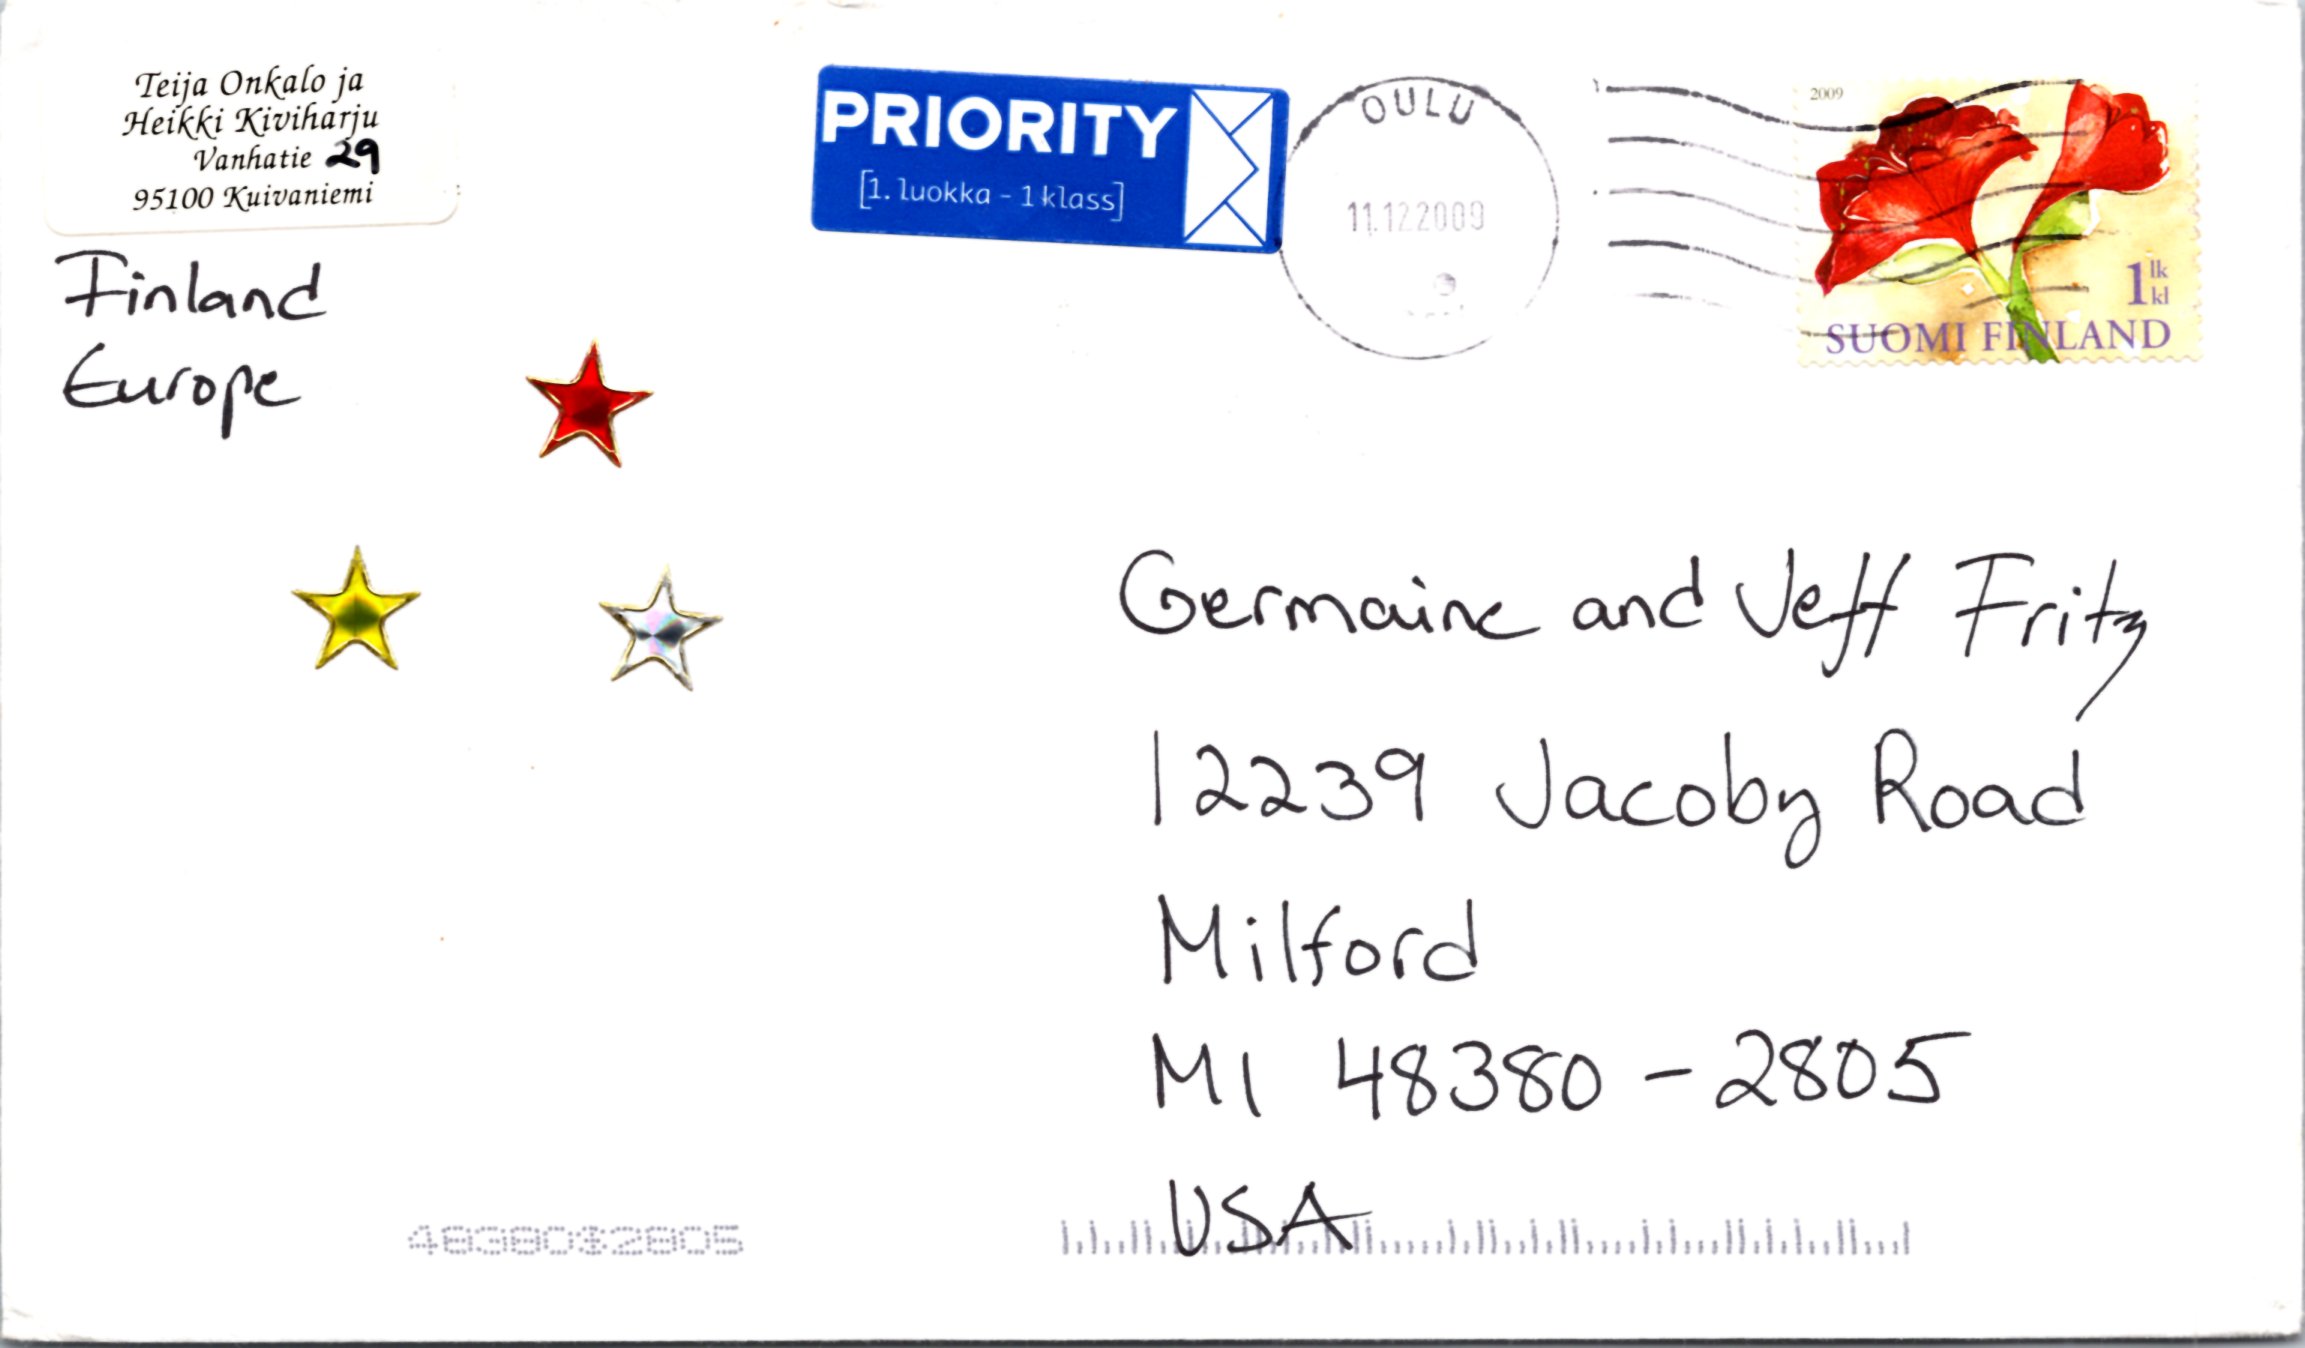 Teija Onkalo ja
Heikki Kiviharju
Vanhatie 29
95100 Kuivaniemi
Finland
Europe
PRIORITY
[1. luokka - 1 klass]
OULU
11.12.2009
2009
1 lk kl
SUOMI FINLAND
Germaine and Jeff Fritz
12239 Jacoby Road
Milford
MI 48380-2805
USA
48380*2805